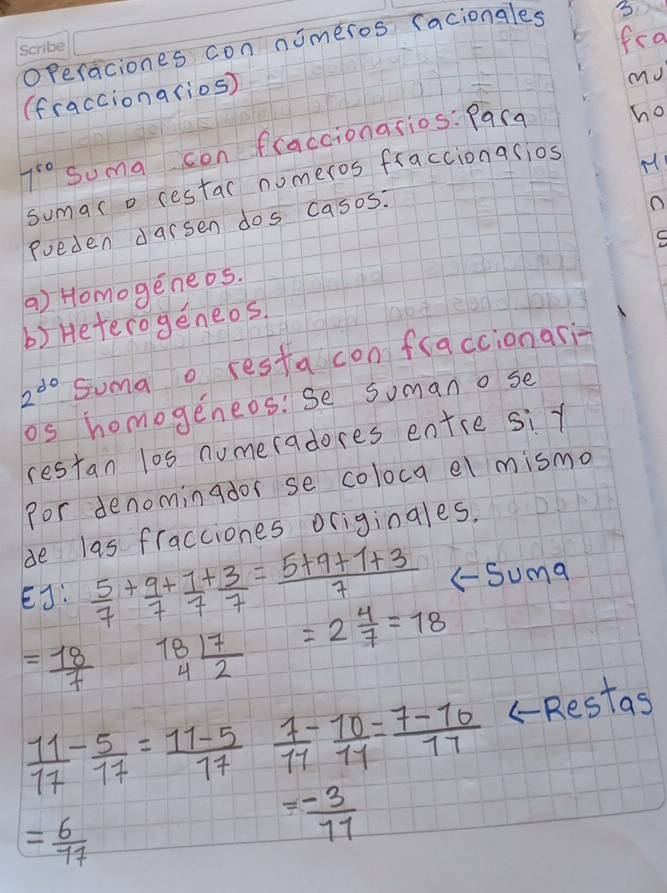 scribe
Operaciones con números racionales
(fraccionarios)
1ro Suma con fraccionarios: Para
sumar o restar numeros fraccionarios
Pueden darsen dos casos:
a) Homogéneos.
b) Heterogéneos.
2do Suma o resta con fraccionari-
os homogéneos: Se suman o se
restan los numeradores entre si y
Por denominador se coloca el mismo
de las fracciones originales.
EJ: 5/7 + 9/7 + 1/7 + 3/7 = 5+9+1+3/7 ← Suma
= 18/7 18 7 4 2 = 2 4/7 = 18
11/17 - 5/17 = 11-5/17 7/11 - 10/11 = 7-10/11 ← Restas
= 6/17 = -3/11
3
fra
mu
ho
n